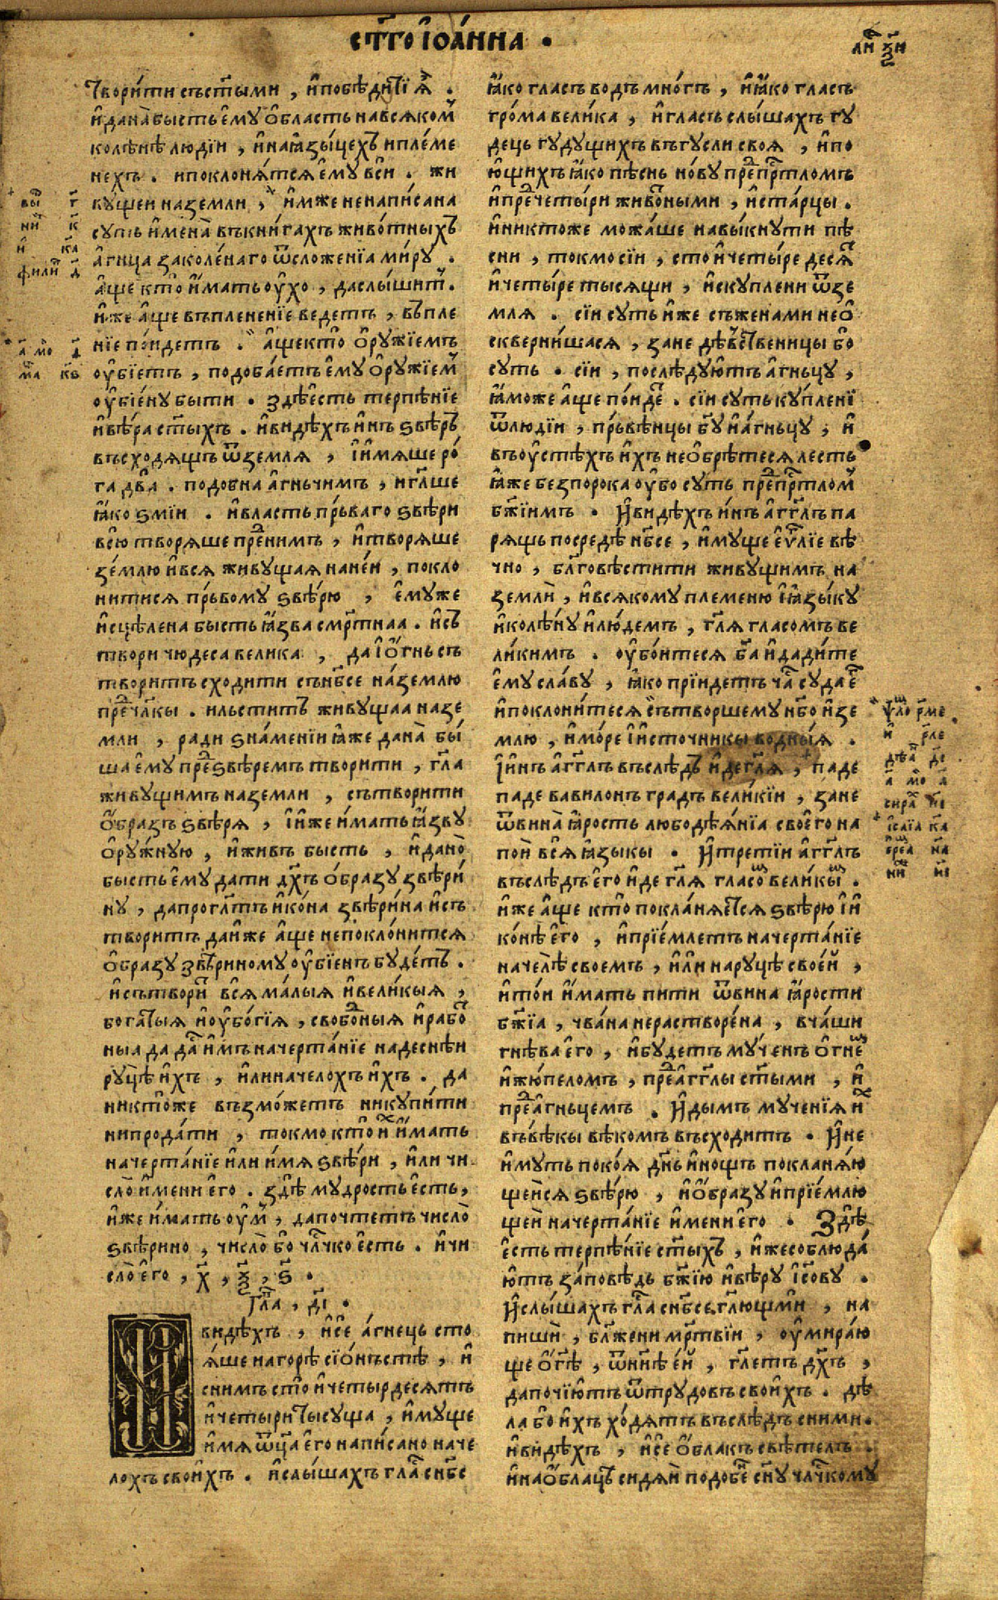 ст҃го і҆ѡа́нна •
творити съст҃ыми , и҆побѣдитї ѧ҆̀ .
и҆дана̀бысть є҆му ѻ҆бласть навсяко̾м
колѣнѣ людїи , и҆наꙗ҆зы́цехъ ипле́ме
нехъ . ипоклонѧ́тсѧ є҆му вси . жи
ву́щеи наземли , и҆мже ненапи́сана
суть и҆мена̀ въкни́гахъ живо́тныхъ
а҆гнца заколе́наго ѿсложе́нїа ми́ру .
а҆ще кто̀ и҆мать ѹ҆́хо , даслы́шит̾ .
и҆же а҆ще въплене́нїе веде́тъ , въпле
нїе по́идетъ . а҆щекто ѻ҆ру́жїемъ
ѹ҆бїе́тъ , подоба́етъ є҆му ѻ҆ру́жїем̾
ѹ҆бїе́ну быти . здѣ̀ є҆сть терпѣ́нїе
и҆вѣ́ра ст҃ыхъ . и҆ви́дѣхъ и҆нъ ѕвѣ́рь
въсходѧщъ ѿземлѧ , і҆и҆мѧ́ше ро́
га два̀ . подобна а҆́гньчимъ , и҆гл҃ше
ꙗ҆́ко ѕми́и . и҆власть пр́ьваго ѕвѣ́ри
всю творѧ́ше пре́дни́мъ , и҆творѧ́ше
зе́млю и҆всѧ живу́щаѧ нане́и , покло
ни́тисѧ пр́ьвому ѕвѣ́рю , є҆му́же
и҆сцѣле́на бысть ꙗ҆́зва смр́тнаа . и҆съ
твори чюдеса велика , да і҆ѻ҆́гнь съ
творитъ сходи́ти сън҃бсе на́землю
пре́дчл҃кы . ильсти́тъ живу́щаа назе
мли , ради ѕна́менїи ꙗ҆́же дана̀ бы́
ша є҆му пре́дѕвѣ́ремъ твори́ти , гл҃ѧ
живу́щимъ наземли , сътвори́ти
ѻ҆́бразъ ѕвѣ́рѧ , і҆и҆же и҆́мать ꙗ҆́зву
ѻ҆ру́жную , и҆живъ бы́сть , и҆дано̀
бысть є҆му дати дх҃ъ ѻ҆́бразу звѣ́ри
ну , дапрогл҃тъ и҆ко́на звѣ́рина и҆съ
творитъ даи҆же а҆ще непокло́нитсѧ
ѻ҆́бразу звѣ́риному ѹ҆бїе́нъ бу́детъ .
и҆сътвори̾ всѧ ма́лыѧ и҆вели́кыѧ ,
бога́тыѧ и҆ѹ҆бо́гїѧ , свобо́дныѧ и҆рабо̾
ныа да да́стъ и҆мъ начерта́нїе надеснѣи
руцѣ̀ и҆хъ , и҆линачелохъ и҆хъ . да
никто́же възмо́жетъ ни купи́ти
нипрода́ти , токмо кто̀ и҆́мать
начерта́нїе и҆ли и҆мѧ ѕвѣ́ри , и҆ли чи
сло̀ и҆́мени є҆го . здѣ̀ мудрость є҆сть ,
и҆же и҆мать ѹ҆м̾ , дапочте́тъ число̀
ѕвѣ́рино , число̀ бо чл҃чко є҆сть . и҆чи
сло̀ є҆го , х҃ , ѯ҃ , ѕ҃ .
Гл҃а , д҃і .
видѣхъ , и҆се а҆́гнець сто
ѧ́ше нагорѣ̀ сїо́ньстѣ , и҆
снимъ сто̀ и҆четырдесѧтъ
и҆четыри тысуща , и҆му́ще
и҆мѧ ѿц҃а є҆го напи́сано наче
лохъ свои҆хъ . и҆слы́шахъ гла́съ сн҃бсе
ꙗ҆́ко гласъ водъ мно́гъ , и҆ꙗ҆́ко гласъ
гро́ма вели́ка , и҆гласъ слы́шахъ гу
децъ гуду́щихъ въгу́сли своѧ̀ , и҆по
ю́щихъ ꙗ҆́ко пѣснь но́ву пре́дпрⷭ҇толомъ
и҆пре́дчеты́ри живо́тными , и҆ста́рцы .
и҆никто́же можа́ше навы́кнути пѣ́
сни , токмо сїи , сто и҆четы́ре десѧ́тъ
и҆четы́ре ты́сѧщи , и҆скупле́ни ѿзе
млѧ . сїи суть и҆же съженами неѻ҆
сквернишасѧ , зане дѣ́вственицы бо
суть . сїи , послѣ́дуютъ а҆гньцу ,
ꙗ҆́може а҆ще по́идетъ . сїи суть ку́пленї
ѿлюдїи , пр́ьвѣнцы бг҃у и҆а҆гньцу , и҆
въѹ҆стѣ́хъ и҆хъ неѻ҆брѣ́тесѧ лесть
ꙗ҆́же безпорока ѹ҆бо суть пре́дпрⷭ҇толом̾
бж҃їимъ . И҆видѣхъ и҆нъ а҆гг҃лъ па
рѧ́щъ посредѣ̀ н҃бсе , и҆му́ще є҆ѵⷢ҇лїе вѣ
чно , бл҃говѣсти́ти живу́щимъ на
землѝ , и҆вса́кому племеню и҆ꙗ҆зы́ку
и҆колѣ́ну и҆лю́демъ , гл҃ѧ гласомъ ве
ли́кимъ . ѹ҆бо́итесѧ бг҃а и҆дади́те
є҆му сла́ву , ꙗ҆́ко прїи́детъ ча́съ суда̀ є҆го̾
и҆поклони́тесѧ сътво́ршему н҃бо и҆зе
млю , и҆мо́ре і҆и҆сточникы во́дныѧ .
І҆и҆нъ а҆гг҃лъ въслѣ́дъ и҆де гл҃ѧ , паде
паде вавилонъ гра́дъ вели́кїи , зане
ѿвина̀ ꙗ҆́рость любодѣѧ́нїа своє҆го на
пои̾ всѧ̀ ꙗ҆зы́кы . И҆тре́тїи а҆гг҃лъ
въслѣ́дъ є҆го и҆де гл҃ѧ гласо̾ вели́кы̾ .
и҆же а҆ще кто̀ поклана́етсѧ ѕвѣ́рю і҆и҆
ко́нѣ є҆го , и҆прїе́млетъ начерта́нїе
начелѣ̀ своемъ , и҆ли наруцѣ̀ свое́й ,
и҆то́и и҆́мать пити ѿвина ꙗ҆́рости
бж҃їа , чва́на нерастворе́на , вча́ши
гнѣ́ва є҆го , и҆бу́детъ му́ченъ ѻ҆гне̾
и҆жу́пеломъ , пре́да҆гг҃лы ст҃ыми , и҆
пре́да҆гньцемъ . И҆дымъ мученїѧ и҆хъ
въвѣ́кы вѣкомъ въсхо́дитъ . И҆не
и҆му́ть поко́ѧ дн҃ь и҆но́щъ поклана́ю
щеисѧ ѕвѣ́рю , и҆ѻ҆́бразу и҆прїе́млю
щеи начерта́нїе и҆́мени є҆го . Здѣ̀
є҆сть терпѣ́нїе ст҃ыхъ , и҆же соблюда́
ютъ за́повѣдь бж҃їю и҆вѣ́ру і҆с҃ову .
И҆слы́шахъ гла́съ сн҃бсе гл҃ющъ ми , на
пишѝ , бл҃же́ни мр́твїи , ѹ҆мира́ю
ще ѻ҆ гдⷭ҇ѣ , ѿнн҃ѣ є҆й , гл҃етъ дх҃ъ ,
дапочїю́тъ ѿтрудовъ свои҆хъ . дѣ
ла бо и҆хъ хо́дѧтъ въслѣ́дъ сними .
и҆видѣхъ , и҆се ѻ҆́блакъ свѣтелъ .
и҆наѻ҆́блацѣ сидѧй подобенъ сн҃у чл҃чкому